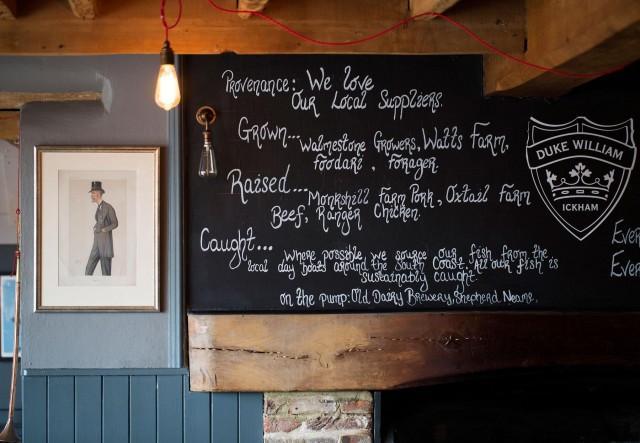 Provenance: We love
Our Local Suppliers.
Grown... Walmestone Growers, Watts Farm,
Foodari, Forager.
Raised... Monkshill Farm Pork, Oxtail Farm
Beef, Ranger Chicken.
Caught... Where possible, we source our fish from the
local day boats around the South Coast. All our fish is
sustainably caught.
on the pump: Old Dairy Brewery, Shepherd Neame.
DUKE WILLIAM
ICKHAM
Ever
Ever